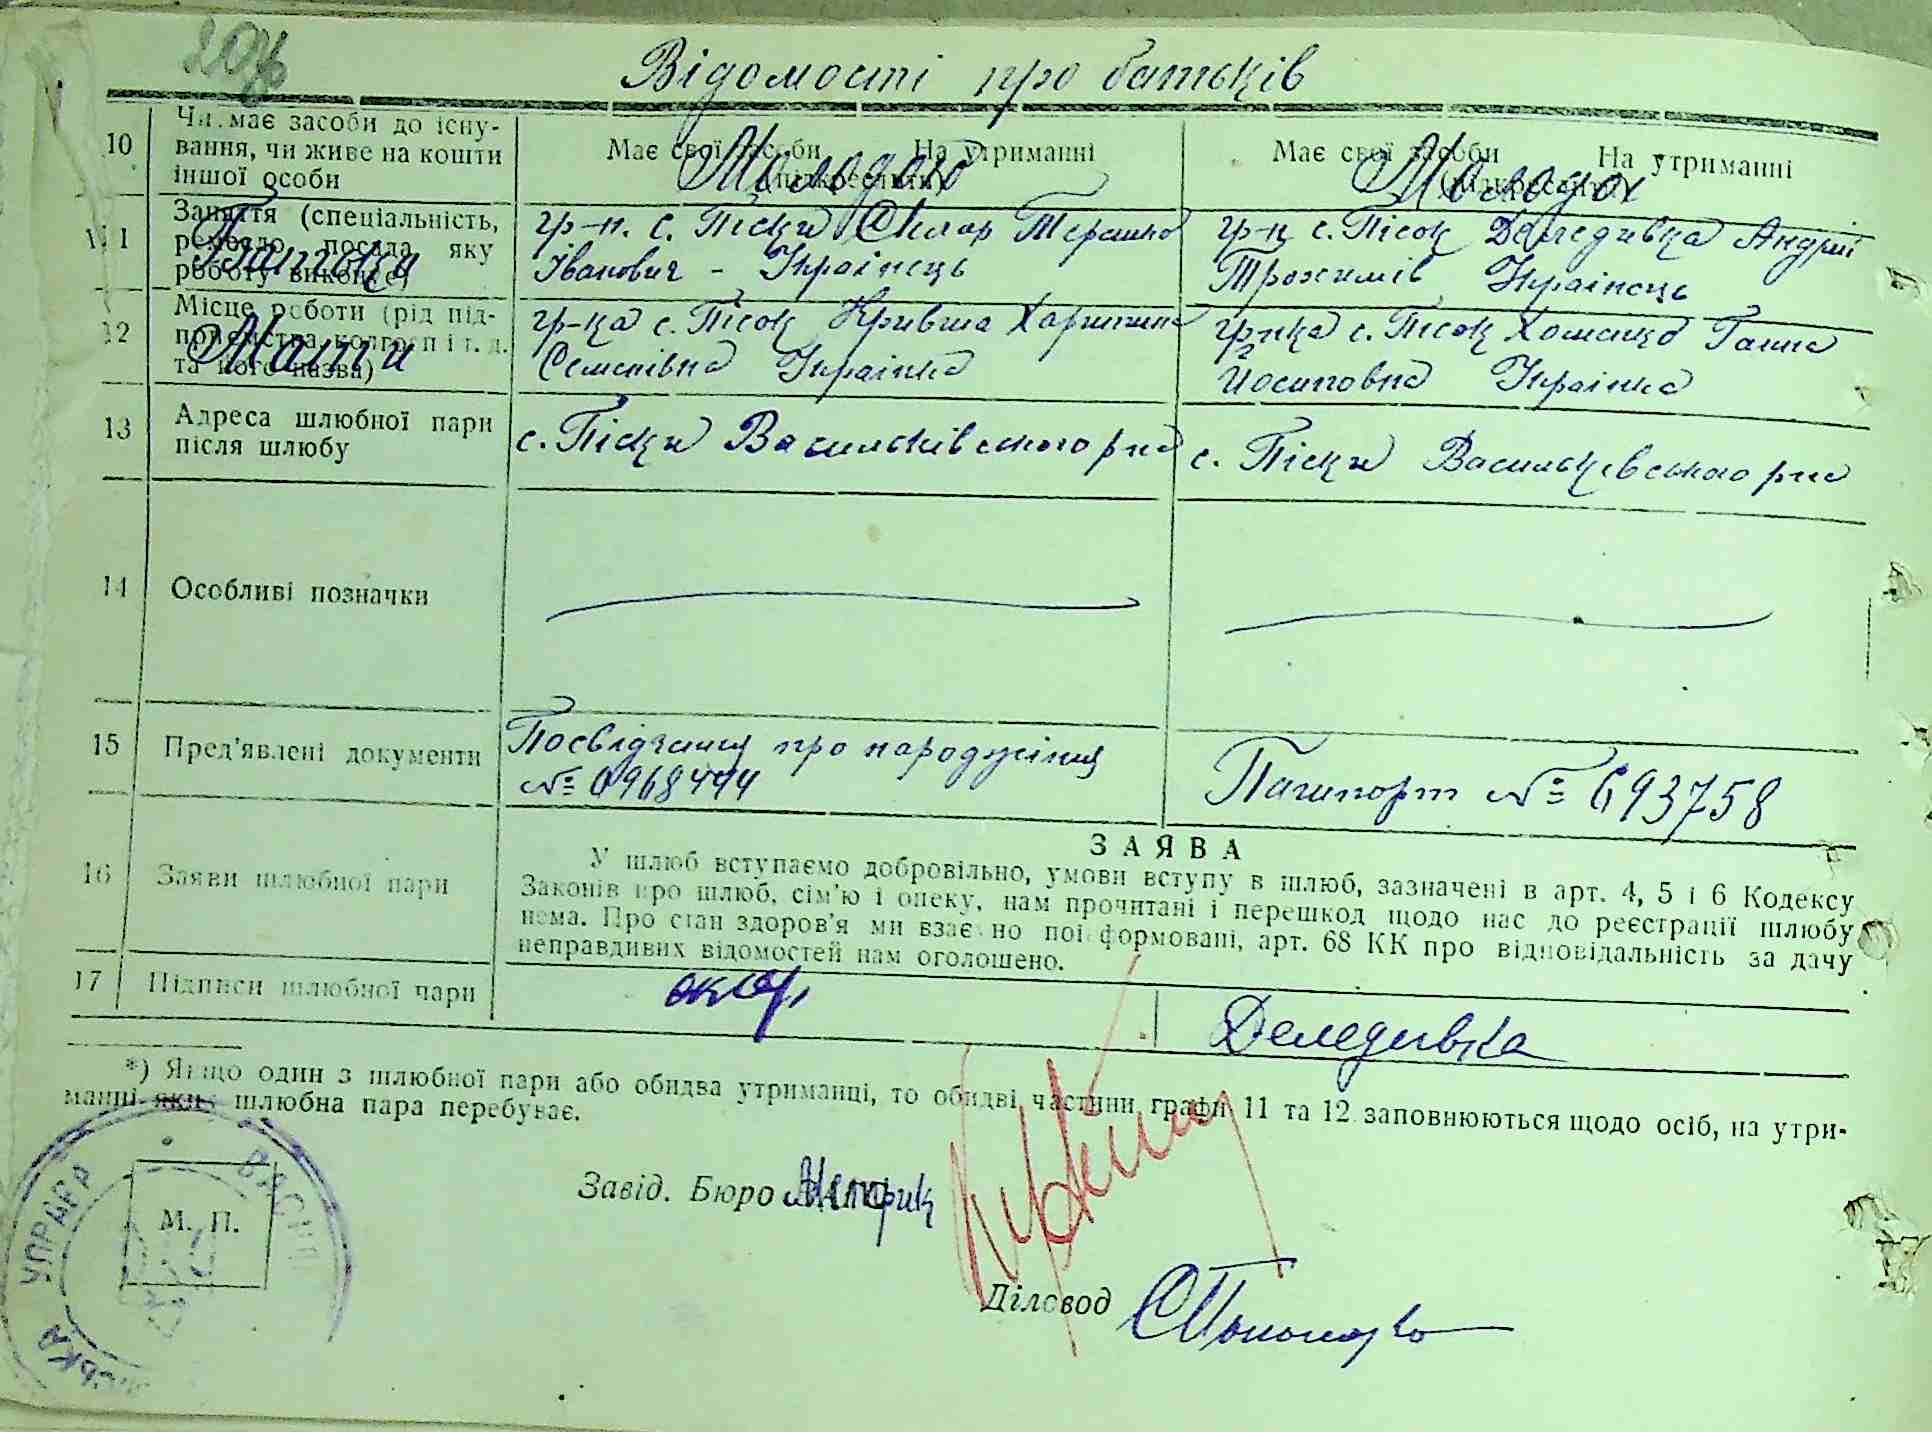 Відомості про батьків
10 Чи має засоби до існу-
вання, чи живе на кошти
іншої особи
Має свої засоби На утриманні
(підкреслити)
Молодого
Має свої засоби На утриманні
(підкреслити)
Молодох
11 Заняття (спеціальність,
ремесло, посада, яку
роботу виконує)
Батько
гр-н. с. Піски Скляр Терешко
Іванович - Українець
гр-н с. Пісок Деледивка Андрій
Трохимів Українець
12 Місце роботи (рід під-
приємства, колгосп і т. д.
та його назва)
Мати
гр-ка с. Пісок Кривша Харитина
Семенівна Українка
гр-нка с. Пісок Хоменко Ганна
Йосиповна Українка
13 Адреса шлюбної пари
після шлюбу
с. Піски Васильківського р-на
с. Піски Васильківського р-на
14 Особливі позначки
15 Пред'явлені документи
Посвідчання про народжіння
№ 0968444
Пашпорт № 693758
16 Заяви шлюбної пари
ЗАЯВА
У шлюб вступаємо добровільно, умови вступу в шлюб, зазначені в арт. 4, 5 і 6 Кодексу
Законів про шлюб, сім'ю і опеку, нам прочитані і перешкод щодо нас до реєстрації шлюбу
нема. Про стан здоров'я ми взаємно поінформовані, арт. 68 КК про відповідальність за дачу
неправдивих відомостей нам оголошено.
17 Підписи шлюбної пари
Деледивка
*) Якщо один з шлюбної пари або обидва утриманці, то обидві частини графи 11 та 12 заповнюються щодо осіб, на утри-
манні яких шлюбна пара перебуває.
Завід. Бюро
М. П.
Діловод
УПРАВА
ВАСИЛ
СЬКА